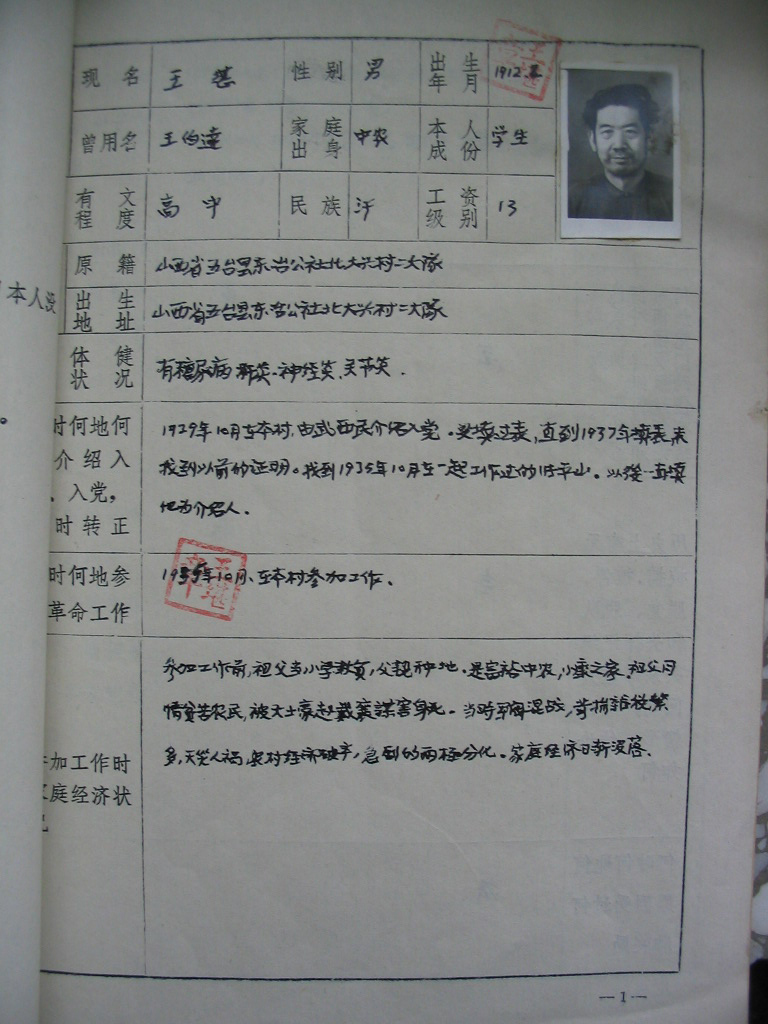 现名 王堪 性别 男 出生年月 1912.
曾用名 王伯达 家庭出身 中农 本人成份 学生
有文程度 高中 民族 汗 工资级别 13
原籍 山西省五台县东冶公社北大兴村二大队
本人没
出生地址 山西省五台县东冶公社北大兴村二大队
体健状况 有糖尿病 肝炎、神经炎、关节炎.
时何地何 1929年10月在本村,由武西民介绍入党。 直到1937年填表未
介绍入 找到以前的证明。找到1935年10月在一起工作过的 平山。以后一直填
、入党, 他为介绍人.
时转正
时何地参 1935年10月、在本村参加工作、
革命工作
参加工作前,祖父当小学教员,父亲种地.是富裕中农,小康之家.祖父同
情贫苦农民,被大土豪赵戴襄谋害身死。当时军阀混战,苛捐杂税繁
加工作时 多,天灾人祸农村经济破产,急剧的两极分化。家庭经济日渐没落.
庭经济状
—1—